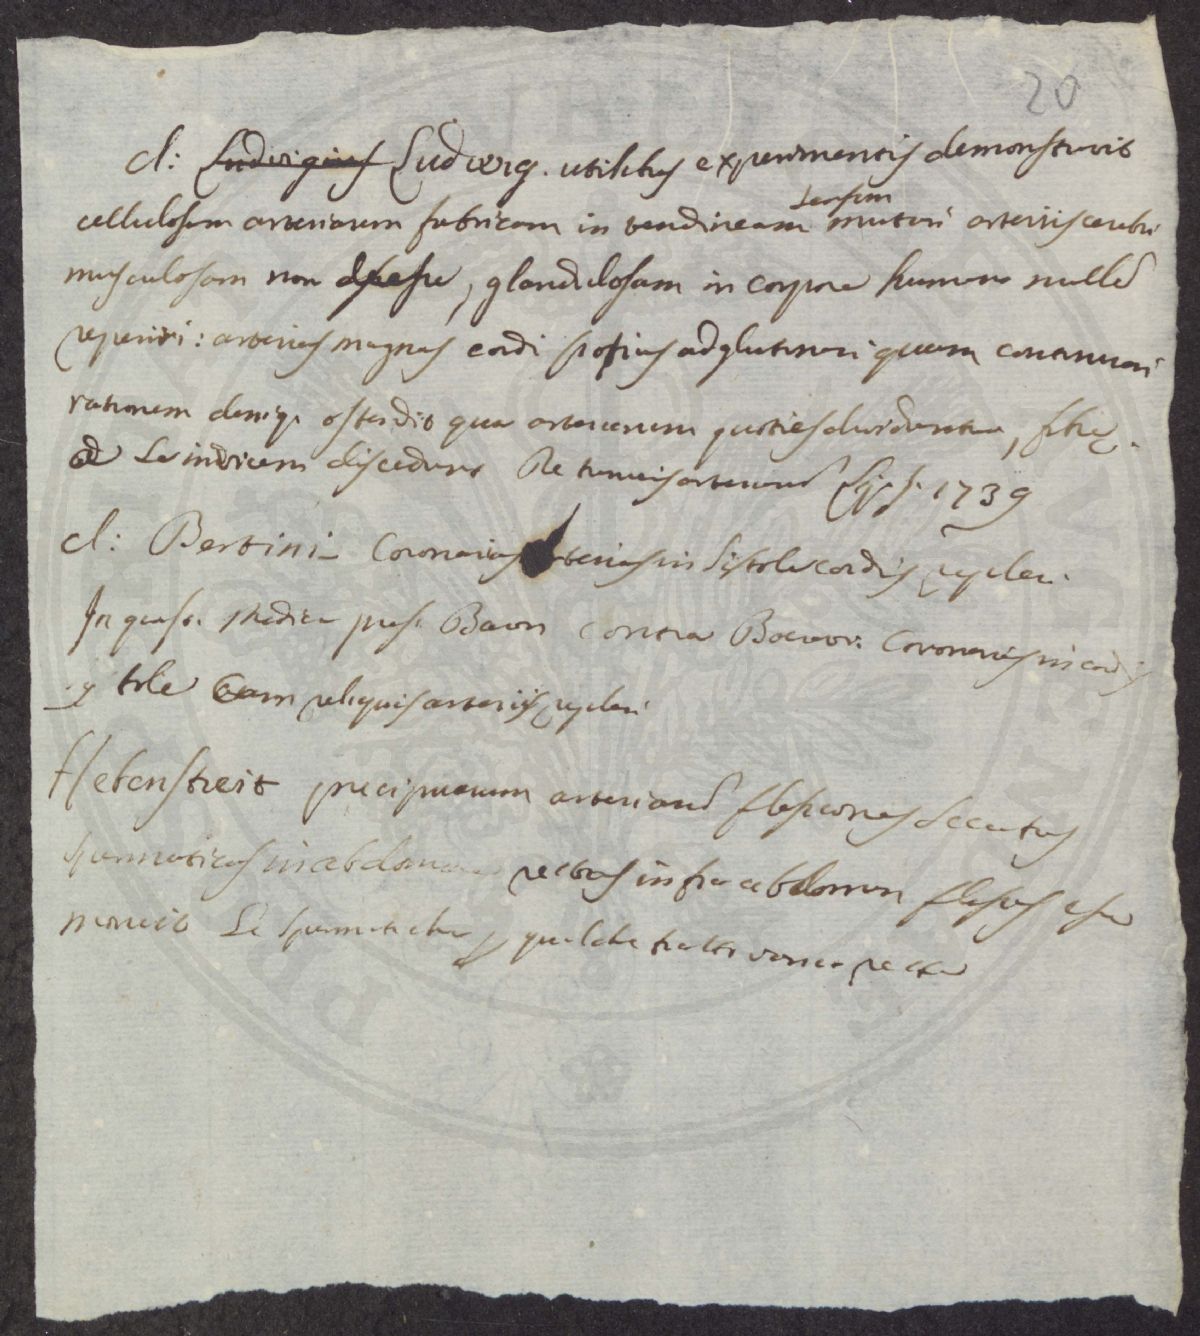 20
cl: Ludwigius Ludwig. utilibus experimentis demonstravit
cellulosam arteriarum fabricam in tendineam sensim mutari arteriis cerebri
musculosam non deesse, glandulosam in corpore humano nullo
reperiri: arterias magnas cordi potius adglutinari quam continuari
rationem deniq. ostendit qua arteriarum quoties dividuntur,
se invicem discedunt De tunicis arteriarum Lips. 1739
cl: Bertini Coronarias arterias in sistole cordis repleri.
In quest. Medica pres. contra Coronarias in cordis
systole Cum reliquis arteriis repleri
Hebenstreit precipuarum arteriarum flexiones
spermaticas in abdomine rectas infra abdomen flexas esse
monuit Le spermatiche p qualche tratto vanno rette